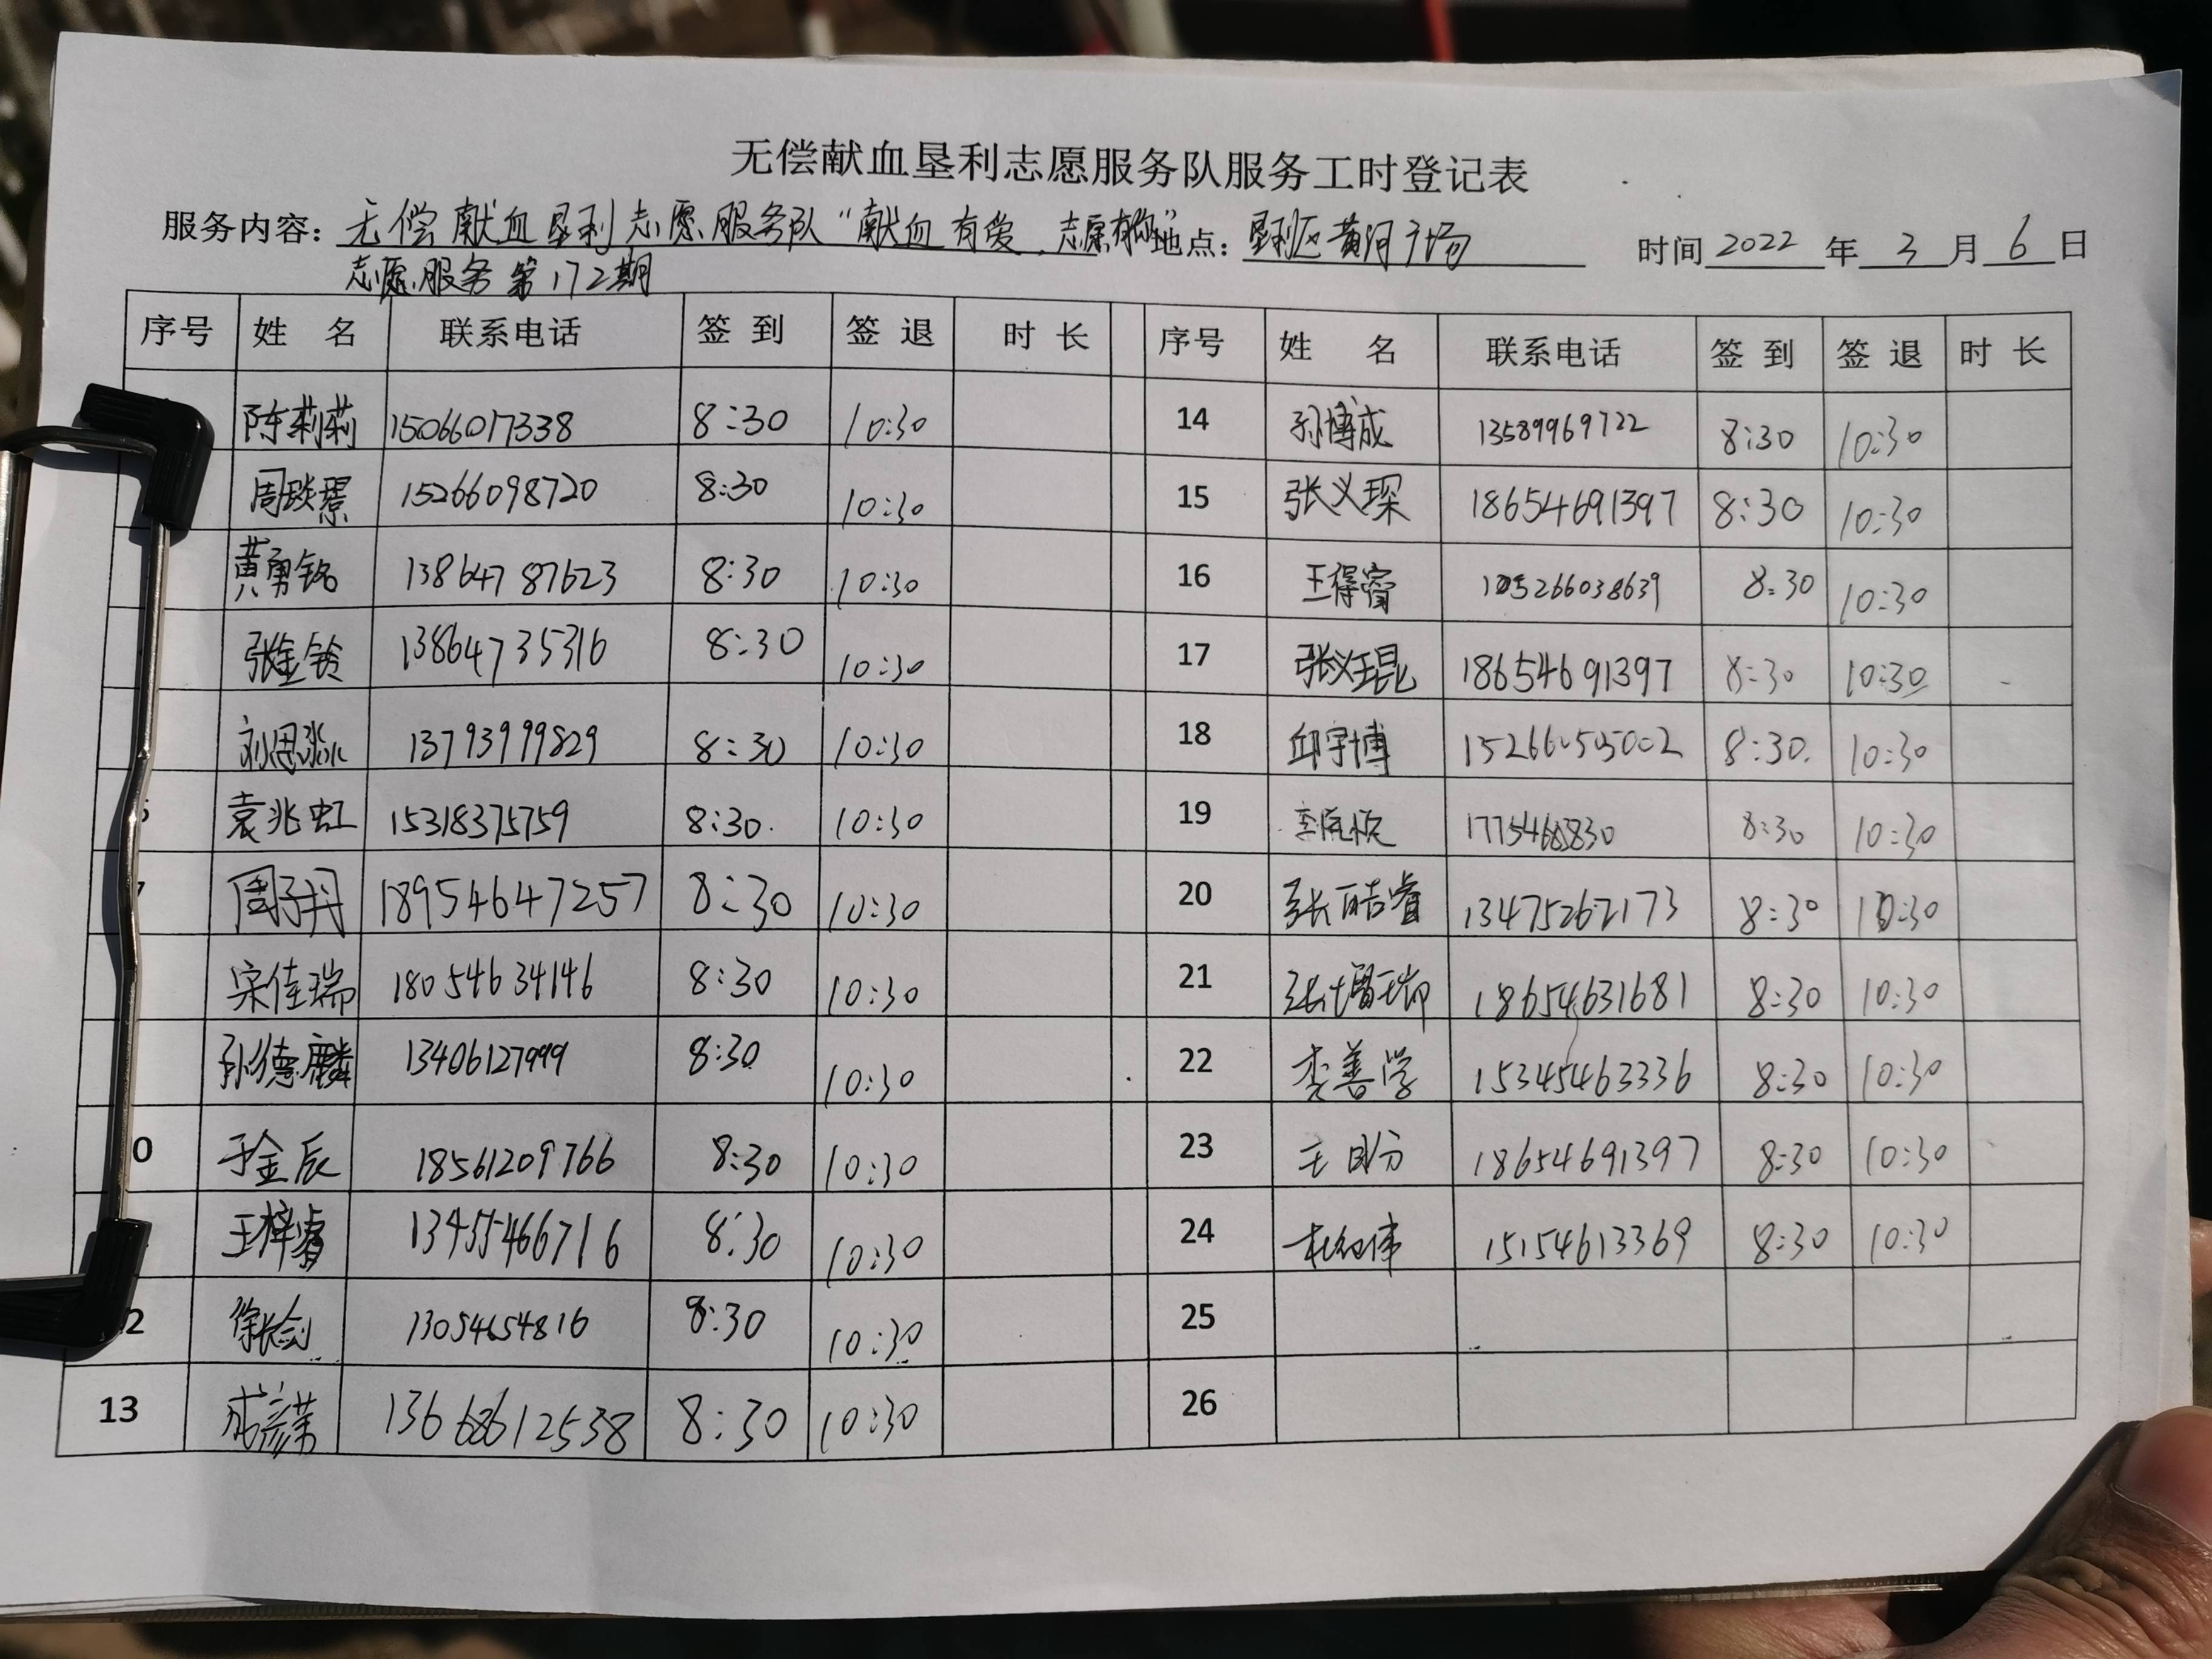 无偿献血垦利志愿服务队服务工时登记表
服务内容：无偿献血垦利志愿服务队“献血有爱，志愿有你” 地点：垦利区黄河广场 时间 2022 年 3 月 6 日
志愿服务第172期
序号 姓 名 联系电话 签 到 签 退 时 长 序号 姓 名 联系电话 签 到 签 退 时 长
陈莉莉 15066017338 8:30 10:30 14 孙博成 13589969722 8:30 10:30
周琰璟 15266098720 8:30 10:30 15 张义琛 18654691397 8:30 10:30
黄勇铭 13864787623 8:30 10:30 16 王得睿 8:30 10:30
张金铃 13864735316 8:30 10:30 17 张义琨 18654691397 8:30 10:30
刘思淼 13793999829 8:30 10:30 18 邱宇博 8:30 10:30
袁兆虹 15318375759 8:30 10:30 19 8:30 10:30
周子丹 18954647257 8:30 10:30 20 张皓睿 13475262173 8:30 10:30
宋佳瑞 18054634146 8:30 10:30 21 18654631681 8:30 10:30
孙德麟 13406127999 8:30 10:30 22 李善学 15345463336 8:30 10:30
0 于金辰 18561209766 8:30 10:30 23 王日分 18654691397 8:30 10:30
王梓睿 13455466716 8:30 10:30 24 15154613369 8:30 10:30
2 徐长剑 13054654816 8:30 10:30 25
13 成彦荣 13668612538 8:30 10:30 26